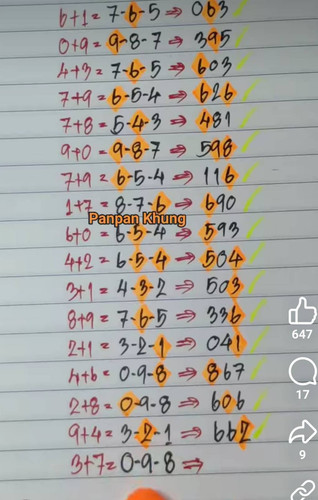 6+1 = 7-6-5 ⇒ 063
0+9 = 9-8-7 ⇒ 395
4+3 = 7-6-5 ⇒ 603
7+9 = 6-5-4 ⇒ 626
7+8 = 5-4-3 ⇒ 481
9+0 = 9-8-7 ⇒ 598
7+9 = 6-5-4 ⇒ 116
1+7 = 8-7-6 ⇒ 690
Panpan Khung
6+0 = 6-5-4 ⇒ 593
4+2 = 6-5-4 ⇒ 504
3+1 = 4-3-2 ⇒ 503
8+9 = 7-6-5 ⇒ 336
647
2+1 = 3-2-1 ⇒ 041
4+6 = 0-9-8 ⇒ 867
17
2+8 = 0-9-8 ⇒ 606
9+4 = 3-2-1 ⇒ 662
9
3+7 = 0-9-8 ⇒